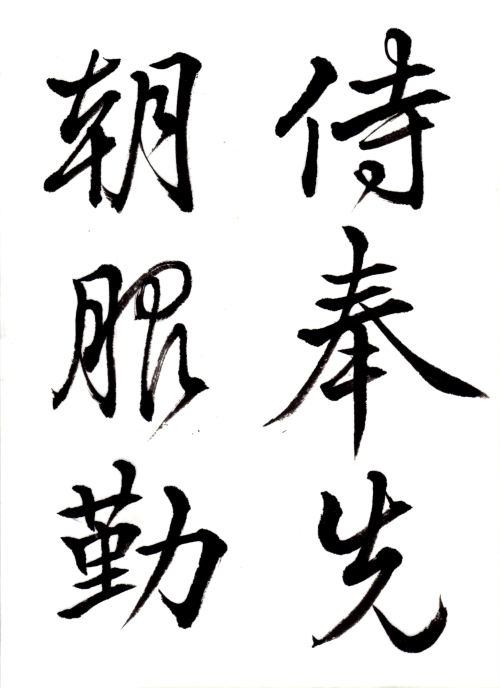 侍奉先
朝服勤